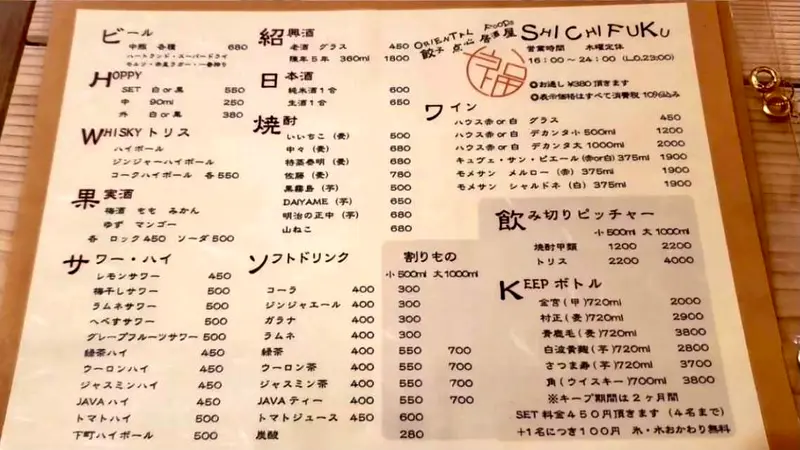 ビール
中瓶 各種 680
ハートランド・スーパードライ
モルツ・赤星ラガー・一番搾り
HOPPY
SET 白or黒 550
中 90ml 250
外 白or黒 380
WHISKY トリス
ハイボール
ジンジャーハイボール
コークハイボール 各550
果実酒
梅酒 もも みかん
ゆず マンゴー
各 ロック450 ソーダ500
サワー・ハイ
レモンサワー 450
梅干しサワー 500
ラムネサワー 500
へべすサワー 500
グレープフルーツサワー 500
緑茶ハイ 450
ウーロンハイ 450
ジャスミンハイ 450
JAVAハイ 450
トマトハイ 500
下町ハイボール 500
紹興酒
老酒 グラス 450
陳年5年 360ml 1800
日本酒
純米酒1合 600
生酒1合 650
焼酎
いいちこ(麦) 500
中々(麦) 680
特蒸泰明(麦) 680
佐藤(麦) 780
黒霧島(芋) 500
DAIYAME(芋) 650
明治の正中(芋) 680
山ねこ 680
ソフトドリンク
コーラ 400
ジンジャエール 400
ガラナ 400
ラムネ 400
緑茶 400
ウーロン茶 400
ジャスミン茶 400
JAVAティー 400
トマトジュース 450
炭酸
割りもの
小500ml 大1000ml
300
300
300
300
550 700
550 700
550 700
550 700
600
280
ORIENTAL FOODS
餃子 点心 居酒屋
SHICHIFUKU
営業時間 木曜定休
16:00〜24:00 (L.O.23:00)
◎お通し¥380頂きます
◎表示価格はすべて消費税10%込み
ワイン
ハウス赤or白 グラス 450
ハウス赤or白 デカンタ小500ml 1200
ハウス赤or白 デカンタ大1000ml 2000
キュヴェ・サン・ピエール(赤or白)375ml 1900
モメサン メルロー(赤) 375ml 1900
モメサン シャルドネ(白)375ml 1900
飲み切りピッチャー
小500ml 大1000ml
焼酎甲類 1200 2200
トリス 2200 4000
KEEPボトル
金宮(甲)720ml 2000
村正(麦)720ml 2900
青鹿毛(麦)720ml 3800
白波黄麹(芋)720ml 2800
さつま寿(芋)720ml 3700
角(ウイスキー)700ml 3800
※キープ期間は2ヶ月間
SET料金450円頂きます(4名まで)
+1名につき100円 氷・水おかわり無料